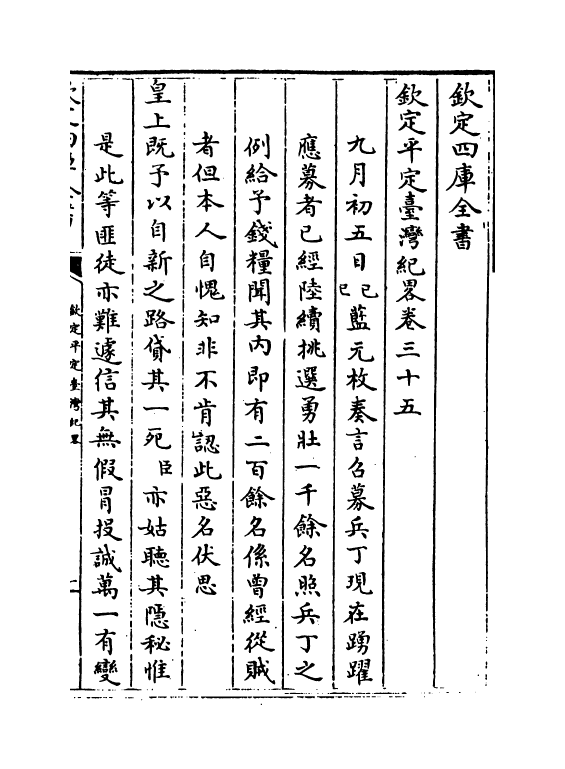 欽定四庫全書
欽定平定臺灣紀畧卷三十五
九月初五日己巳藍元枚奏言召募兵丁現在踴躍
應募者已經陸續挑選勇壯一千餘名照兵丁之
例給予錢糧聞其内即有二百餘名係曾經從賊
者但本人自愧知非不肯認此惡名伏思
皇上既予以自新之路貸其一死臣亦姑聽其隱秘惟
是此等匪徒亦難遽信其無假冒投誠萬一有變
欽定平定臺灣紀畧